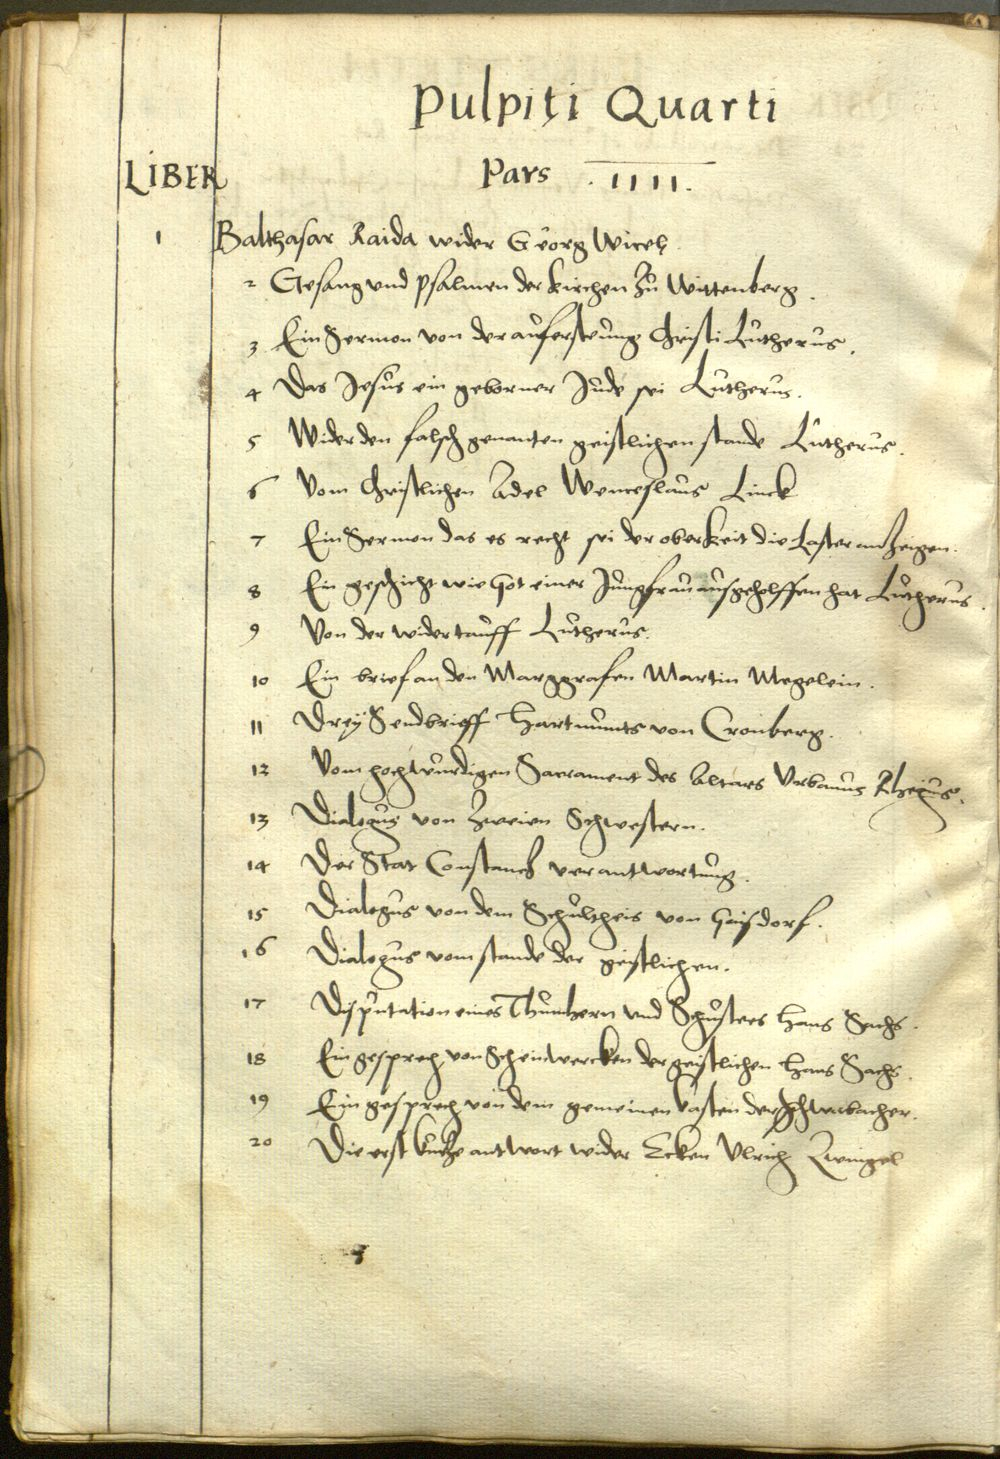 Pulpiti Quarti
LIBER Pars .IIII.
1 Balthasar Raida wider Georg Wicel
2 Gesang und psalmen der kirchen zu Wittenberg.
3 Ein Sermon von der aufersteung Christi Lutherus.
4 Das Jesus ein geborner Jude sei Lutherus.
5 Wider den falsch genanten geistlichen stande Lutherus.
6 Vom Christlichen Adel Wenceslaus Linck
7 Ein Sermon das es recht sei der oberkeit die Laster anzeigen.
8 Ein geschicht wie Got einer Jungfrau ausgeholffen hat Lutherus.
9 Von der widertauff Lutherus.
10 Ein brief an den Marggrafen Martin Megelein.
11 Drey Sendbrieff Hartmuts von Cronberg.
12 Vom hochwurdigen Sacrament des Altars Urbanus Rhegius.
13 Dialogus von zweien Schwestern.
14 Der Stat Constantz verantwortung.
15 Dialogus von dem Schultheis von Gaisdorf.
16 Dialogus vom stande der geistlichen.
17 Disputation eines Thumhern und Schusters Hans Sachs.
18 Ein gesprech von Scheinwercken der geistlichen Hans Sachs.
19 Ein gesprech von dem gemeinen kasten der Schwabacher.
20 Die erst kurtze antwort wider Ecken Ulrich Zwingel